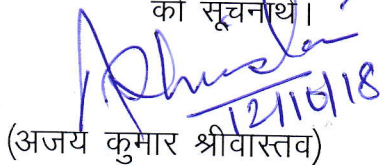 को सूचनार्थ।
12/10/18
(अजय कुमार श्रीवास्तव)